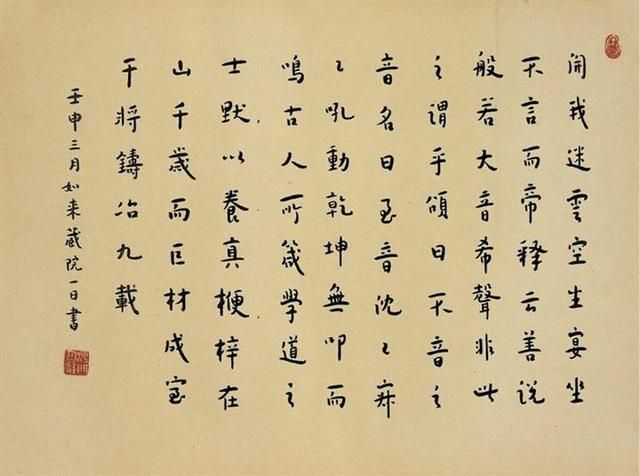 開我迷雲空生宴坐
无言而帝释云善說
般若大音希聲非此
之謂乎頌曰无音之
音名曰至音沈〻寂
〻吼動乾坤無叩而
鳴古人所箴學道之
士默以養真楩梓在
山千歲而巨材成室
干將鑄冶九載
壬申三月如来藏院一日書